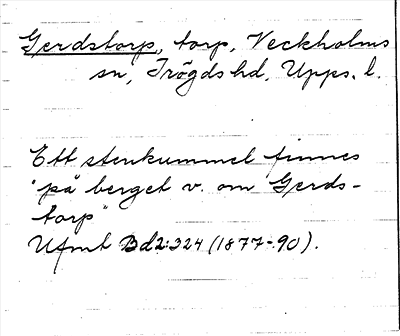 Gerdstorp, torp, Veckholms
sn, Trögds hd, Upps. l.
Ett stenkummel finnes
"på berget v. om Gerds-
torp"
Ufmt Bd 2:324 (1877-90).